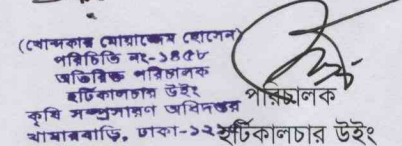 (খোন্দকার মোয়াজ্জেম হোসেন)
পরিচিতি নং-১৪৫৮
অতিরিক্ত পরিচালক
হর্টিকালচার উইং
কৃষি সম্প্রসারণ অধিদপ্তর
খামারবাড়ি, ঢাকা-১২
পরিচালক
হর্টিকালচার উইং